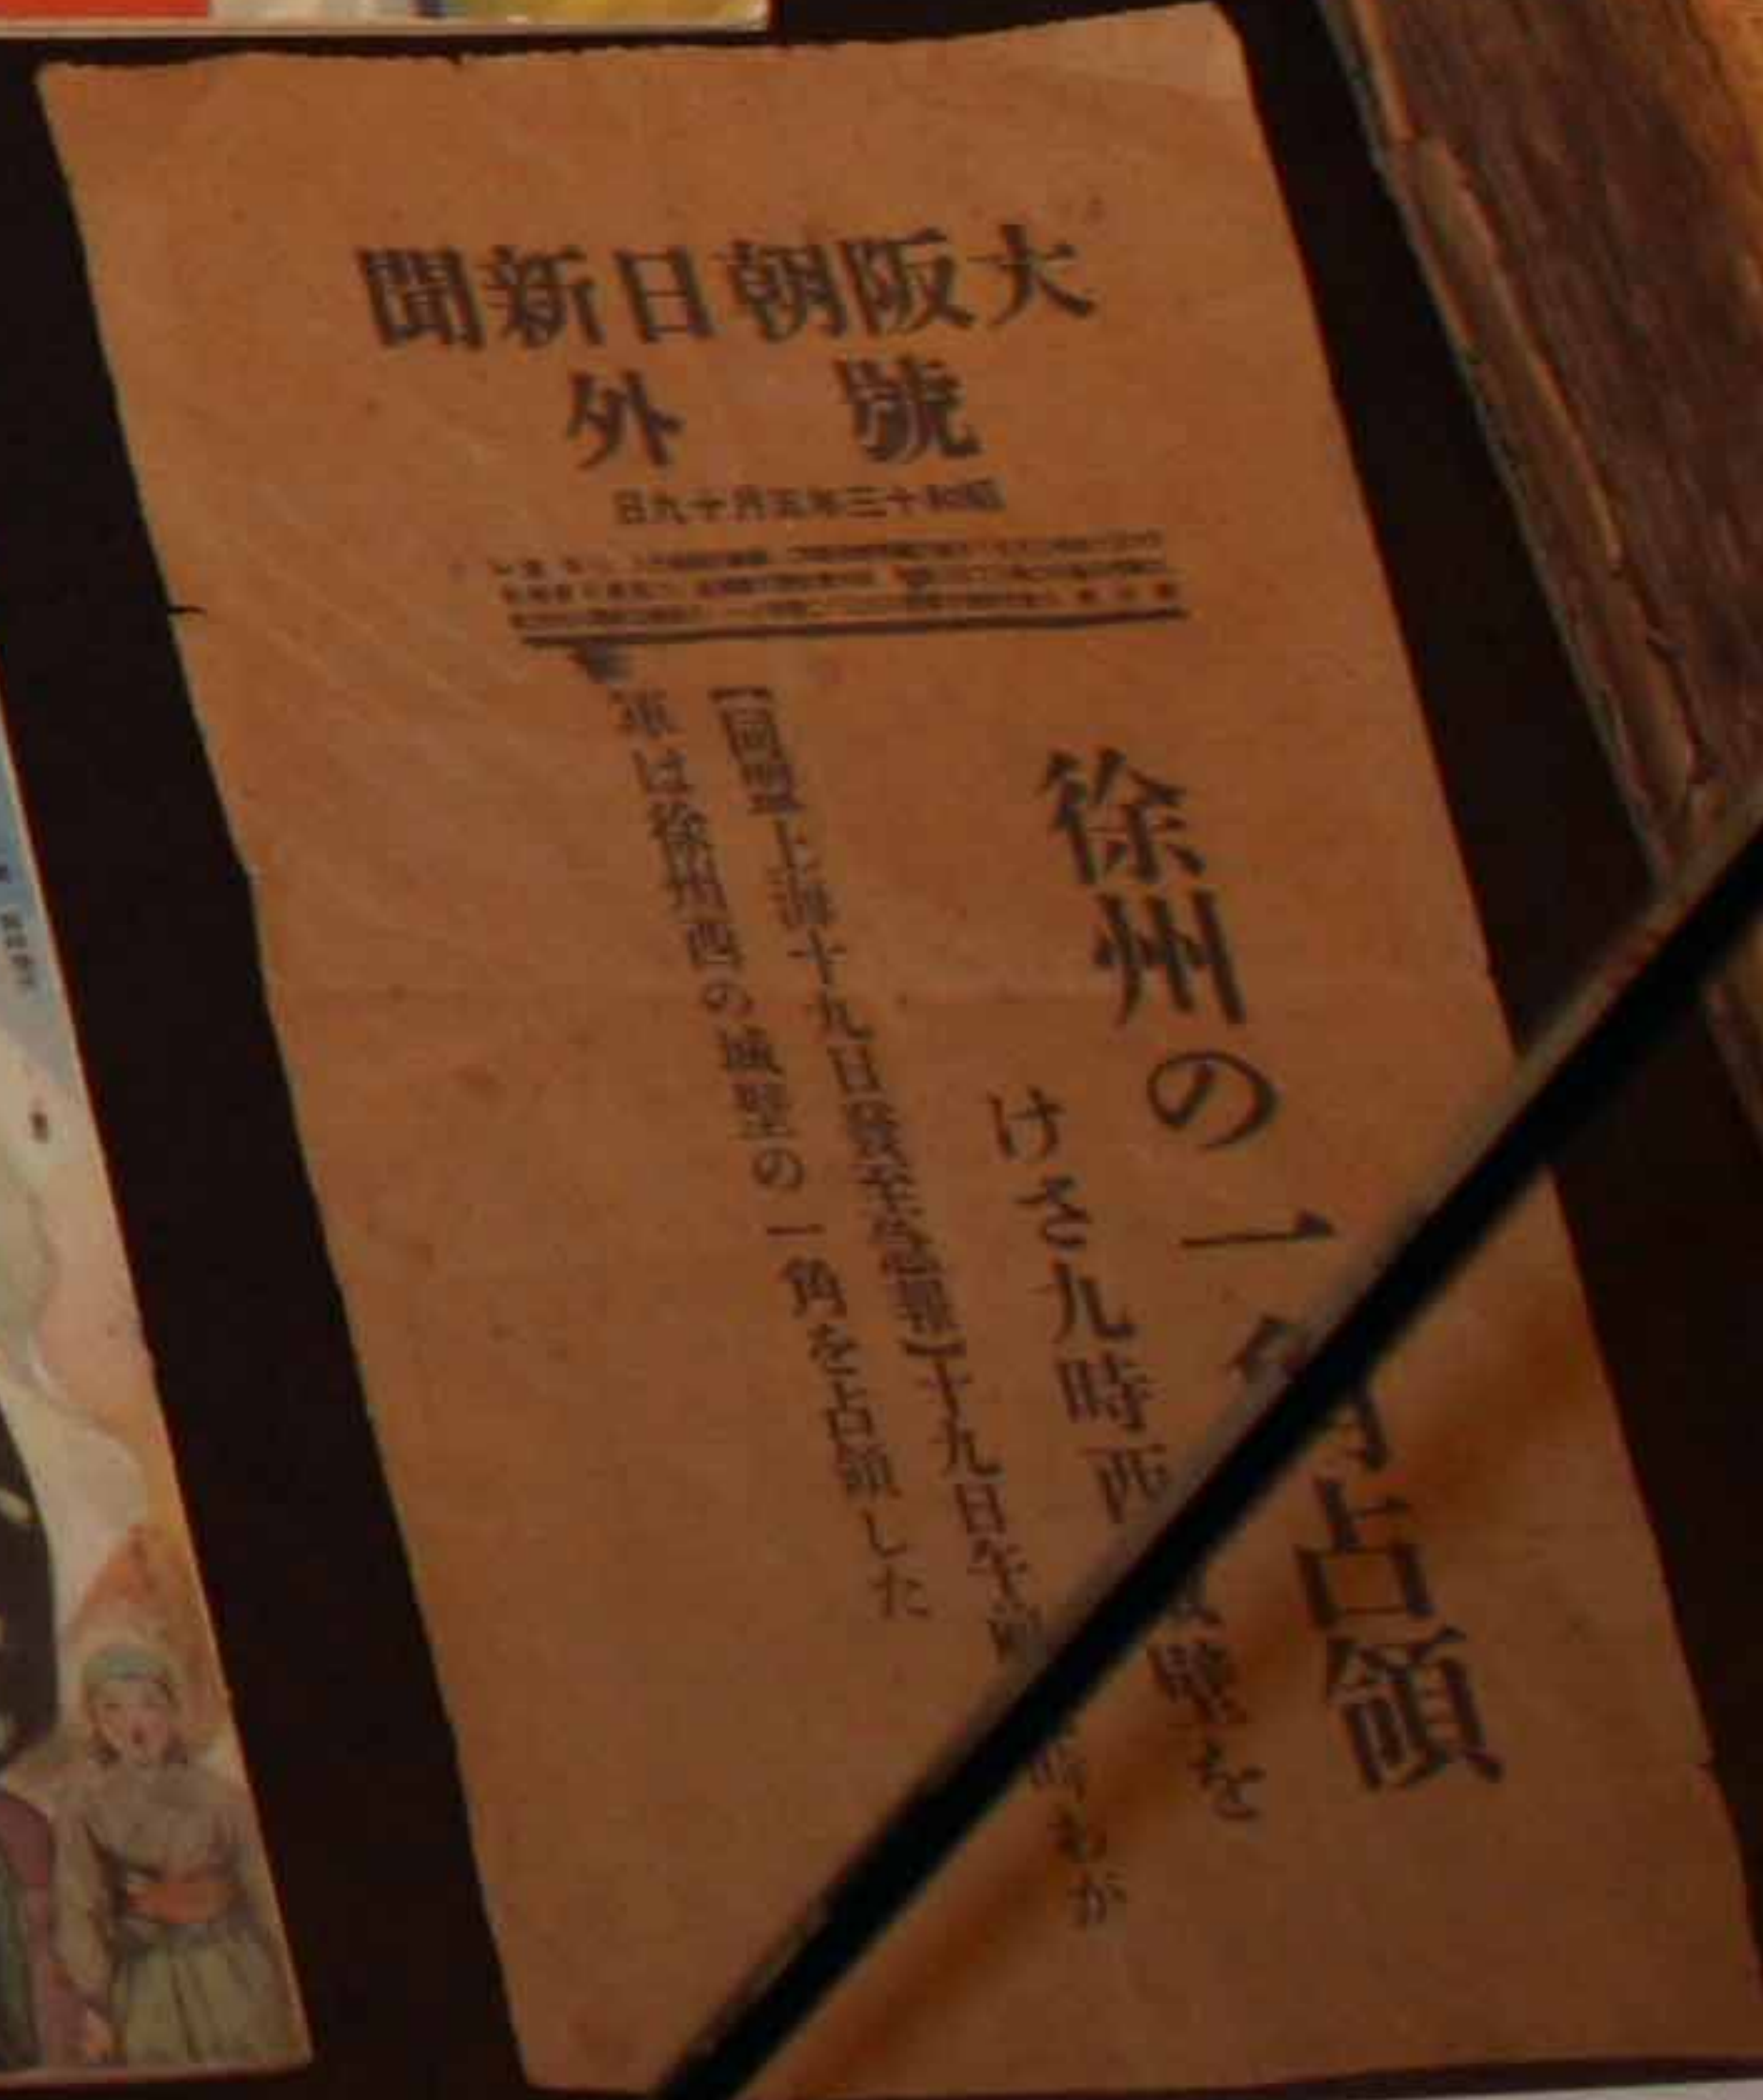 大阪朝日新聞
號外
昭和十三年五月十九日
徐州の一角占領
けさ九時西城壁を
【同盟上海十九日發至急報】十九日午前時わが
軍は徐州西の城壁の一角を占領した